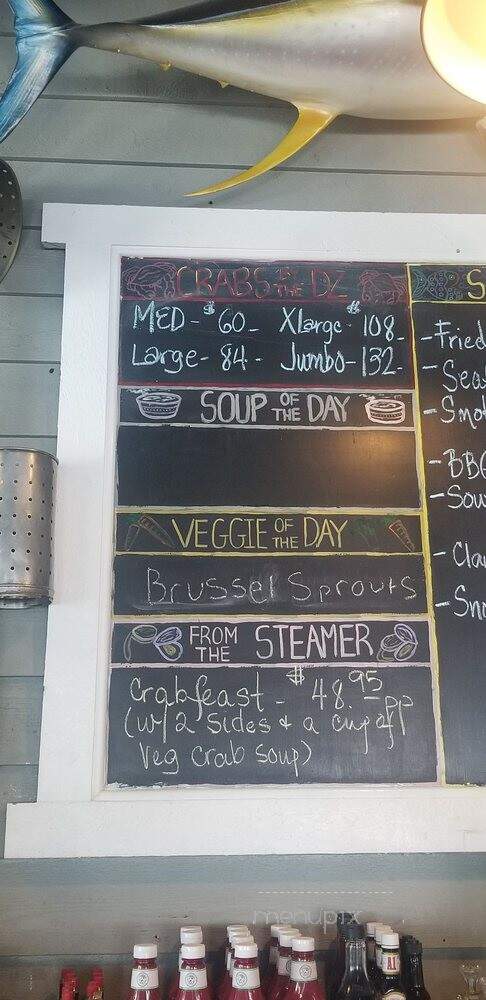 CRABS BY THE DZ
MED - $60 - XLarge - $108 -
Large - 84 - Jumbo - 132 -
SOUP OF THE DAY
VEGGIE OF THE DAY
Brussel Sprouts
FROM THE STEAMER
Crabfeast - $48.95 pp
(w/ 2 Sides & a cup of
Veg crab soup)
S
- Fried
- Sea
- Smo
- BBQ
- Sou
- Cla
- Sno
menupix